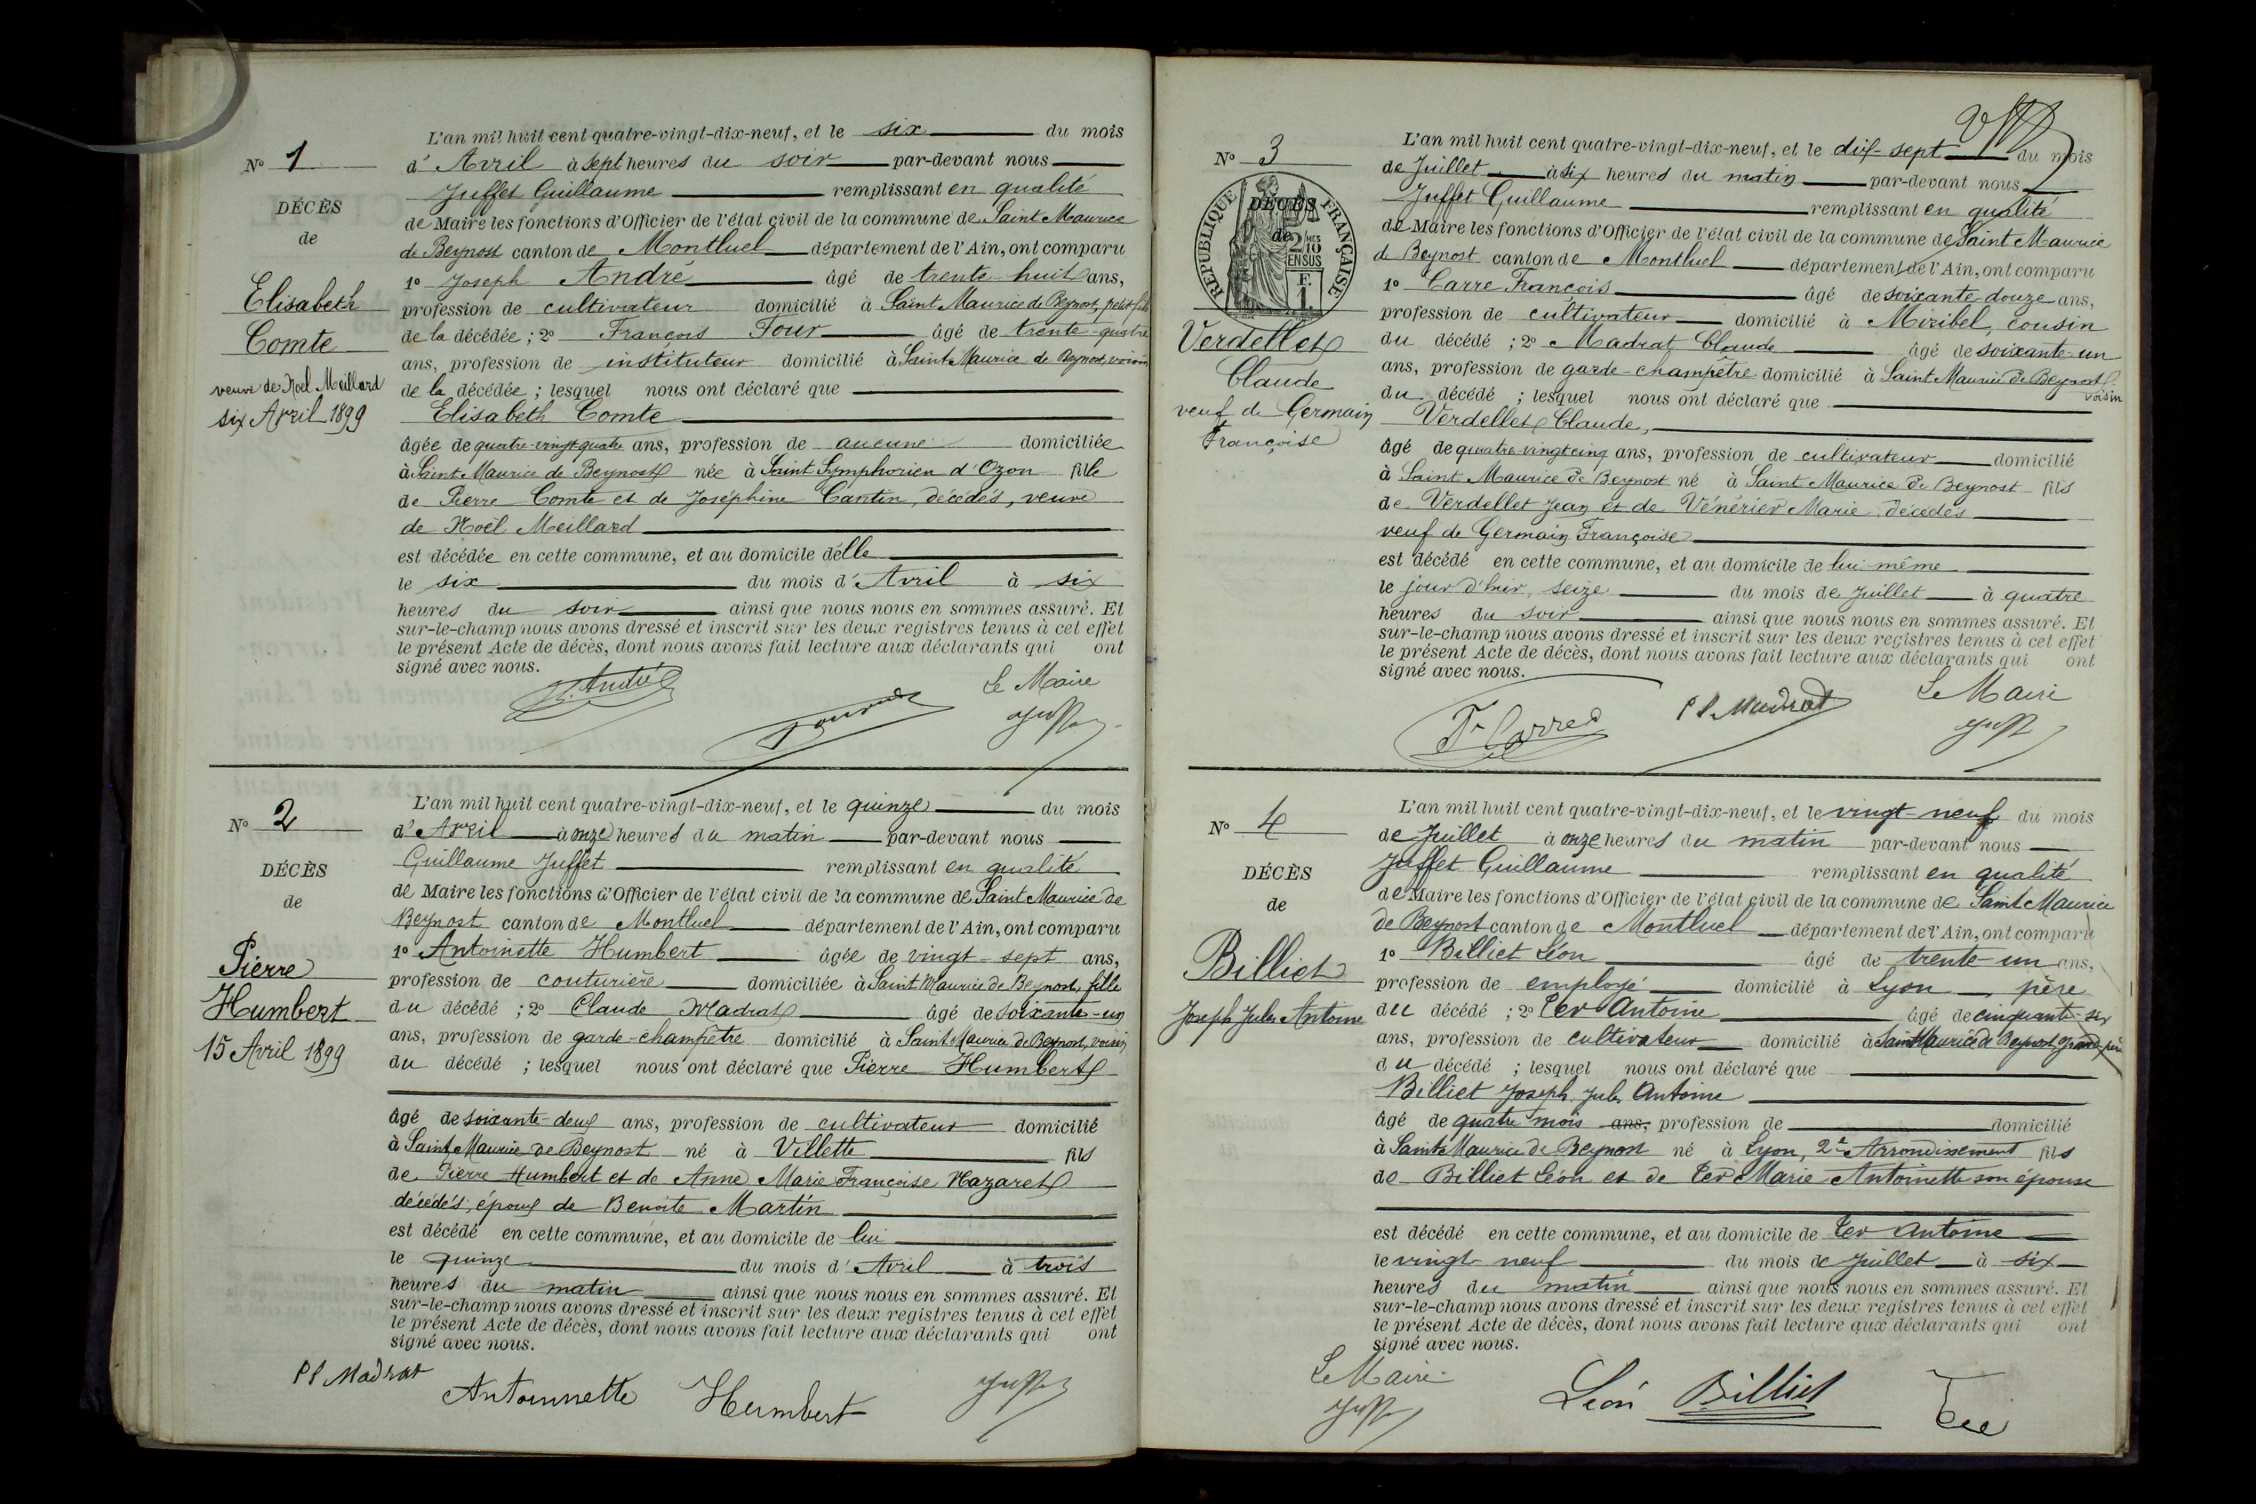 N° 1
DÉCÈS
de
Elisabeth
Comte
veuve de Noël Meillard
six Avril 1899
L'an mil huit cent quatre-vingt-dix-neuf, et le six du mois
d'Avril à sept heures du soir par-devant nous
Juffet Guillaume remplissant en qualité
de Maire les fonctions d'Officier de l'état civil de la commune de Saint Maurice
de Beynost canton de Montluel département de l'Ain, ont comparu
1° Joseph André âgé de trente-huit ans,
profession de cultivateur domicilié à Saint Maurice de Beynost, petit-fils
de la décédée ; 2° François Four âgé de trente-quatre
ans, profession de instituteur domicilié à Saint Maurice de Beynost, voisin
de la décédée ; lesquel nous ont déclaré que
Elisabeth Comte
âgée de quatre-vingt-quatre ans, profession de aucune domiciliée
à Saint Maurice de Beynost née à Saint Symphorien d'Ozon fille
de Pierre Comte et de Joséphine Cantin, décédés, veuve
de Noël Meillard
est décédée en cette commune, et au domicile d'elle
le six du mois d'Avril à six
heures du soir ainsi que nous nous en sommes assuré. Et
sur-le-champ nous avons dressé et inscrit sur les deux registres tenus à cet effet
le présent Acte de décès, dont nous avons fait lecture aux déclarants qui ont
signé avec nous.
André
Le Maire
Juffet
N° 2
DÉCÈS
de
Pierre
Humbert
15 Avril 1899
L'an mil huit cent quatre-vingt-dix-neuf, et le quinze du mois
d'Avril à onze heures du matin par-devant nous
Guillaume Juffet remplissant en qualité
de Maire les fonctions d'Officier de l'état civil de la commune de Saint Maurice de
Beynost canton de Montluel département de l'Ain, ont comparu
1° Antoinette Humbert âgée de vingt-sept ans,
profession de couturière domiciliée à Saint Maurice de Beynost, fille
du décédé ; 2° Claude Madrat âgé de soixante-un
ans, profession de garde-champêtre domicilié à Saint Maurice de Beynost, voisin
du décédé ; lesquel nous ont déclaré que Pierre Humbert
âgé de soixante-deux ans, profession de cultivateur domicilié
à Saint Maurice de Beynost né à Villette fils
de Pierre Humbert et de Anne Marie Françoise Nazaret
décédés, époux de Benoîte Martin
est décédé en cette commune, et au domicile de lui
le quinze du mois d'Avril à trois
heures du matin ainsi que nous nous en sommes assuré. Et
sur-le-champ nous avons dressé et inscrit sur les deux registres tenus à cet effet
le présent Acte de décès, dont nous avons fait lecture aux déclarants qui ont
signé avec nous.
Madrat
Antoinnette Humbert
Juffet
N° 3
RÉPUBLIQUE FRANÇAISE
2/10 MES EN SUS
F. 1.
DÉCÈS
de
Verdellet
Claude
veuf de Germain
Françoise
L'an mil huit cent quatre-vingt-dix-neuf, et le dix-sept du mois
de Juillet à six heures du matin par-devant nous
Juffet Guillaume remplissant en qualité
de Maire les fonctions d'Officier de l'état civil de la commune de Saint Maurice
de Beynost canton de Montluel département de l'Ain, ont comparu
1° Carre François âgé de soixante douze ans,
profession de cultivateur domicilié à Miribel, cousin
du décédé ; 2° Madrat Claude âgé de soixante-un
ans, profession de garde-champêtre domicilié à Saint Maurice de Beynost
voisin
du décédé ; lesquel nous ont déclaré que
Verdellet Claude,
âgé de quatre-vingt cinq ans, profession de cultivateur domicilié
à Saint Maurice de Beynost né à Saint Maurice de Beynost fils
de Verdellet Jean et de Vénérier Marie, décédés
veuf de Germain Françoise
est décédé en cette commune, et au domicile de lui-même
le jour d'hier, seize du mois de Juillet à quatre
heures du soir ainsi que nous nous en sommes assuré. Et
sur-le-champ nous avons dressé et inscrit sur les deux registres tenus à cet effet
le présent Acte de décès, dont nous avons fait lecture aux déclarants qui ont
signé avec nous.
Fr Carre
Madrat
Le Maire
Juffet
N° 4
DÉCÈS
de
Billiet
Joseph Jules Antoine
L'an mil huit cent quatre-vingt-dix-neuf, et le vingt-neuf du mois
de Juillet à onze heures du matin par-devant nous
Juffet Guillaume remplissant en qualité
de Maire les fonctions d'Officier de l'état civil de la commune de Saint Maurice
de Beynost canton de Montluel département de l'Ain, ont comparu
1° Billiet Léon âgé de trente-un ans,
profession de employé domicilié à Lyon, père
du décédé ; 2° Ter Antoine âgé de cinquante-six
ans, profession de cultivateur domicilié à Saint Maurice de Beynost, grand-père
du décédé ; lesquel nous ont déclaré que
Billiet Joseph Jules Antoine
âgé de quatre mois ans, profession de domicilié
à Saint Maurice de Beynost né à Lyon, 2e Arrondissement fils
de Billiet Léon et de Ter Marie Antoinette son épouse
est décédé en cette commune, et au domicile de Ter Antoine
le vingt-neuf du mois de Juillet à six
heures du matin ainsi que nous nous en sommes assuré. Et
sur-le-champ nous avons dressé et inscrit sur les deux registres tenus à cet effet
le présent Acte de décès, dont nous avons fait lecture aux déclarants qui ont
signé avec nous.
Le Maire
Juffet
Léon Billiet